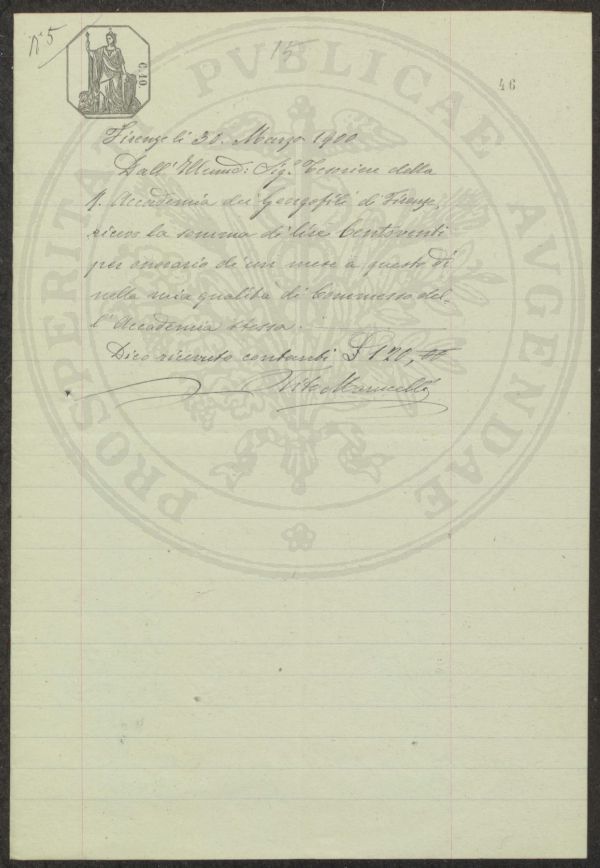 N° 5
15
46
C. 10
PROSPERITATI PVBLICAE AVGENDAE
Firenze li 30. Marzo 1900
Dall' Illumo: Sig.r Tesoriere della
R. Accademia dei Georgofili di Firenze
ricevo la somma di lire Centoventi
per onorario di un mese a questo dì
nella mia qualità di Commesso del-
l'Accademia stessa.
Dico ricevuto contanti £ 120,